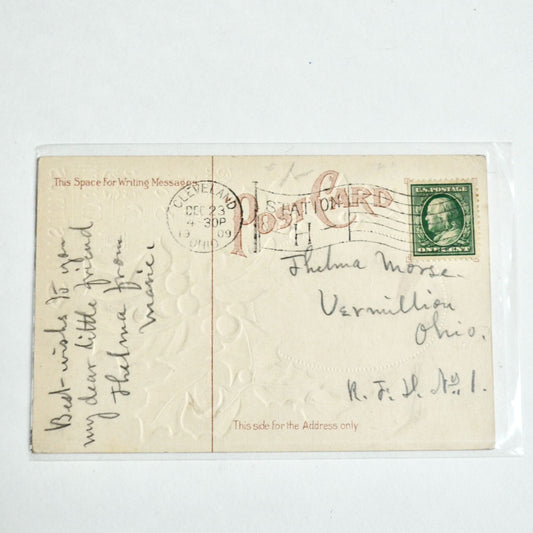 This Space for Writing Messages
POST CARD
CLEVELAND
DEC 23
4-30P
19 09
OHIO
STATION
H
U.S. POSTAGE
ONE CENT
Best-wishes to you
my dear little friend
Thelma from
Marie.
Thelma Morse.
Vermillion
Ohio.
R. F. D. No 1.
This side for the Address only